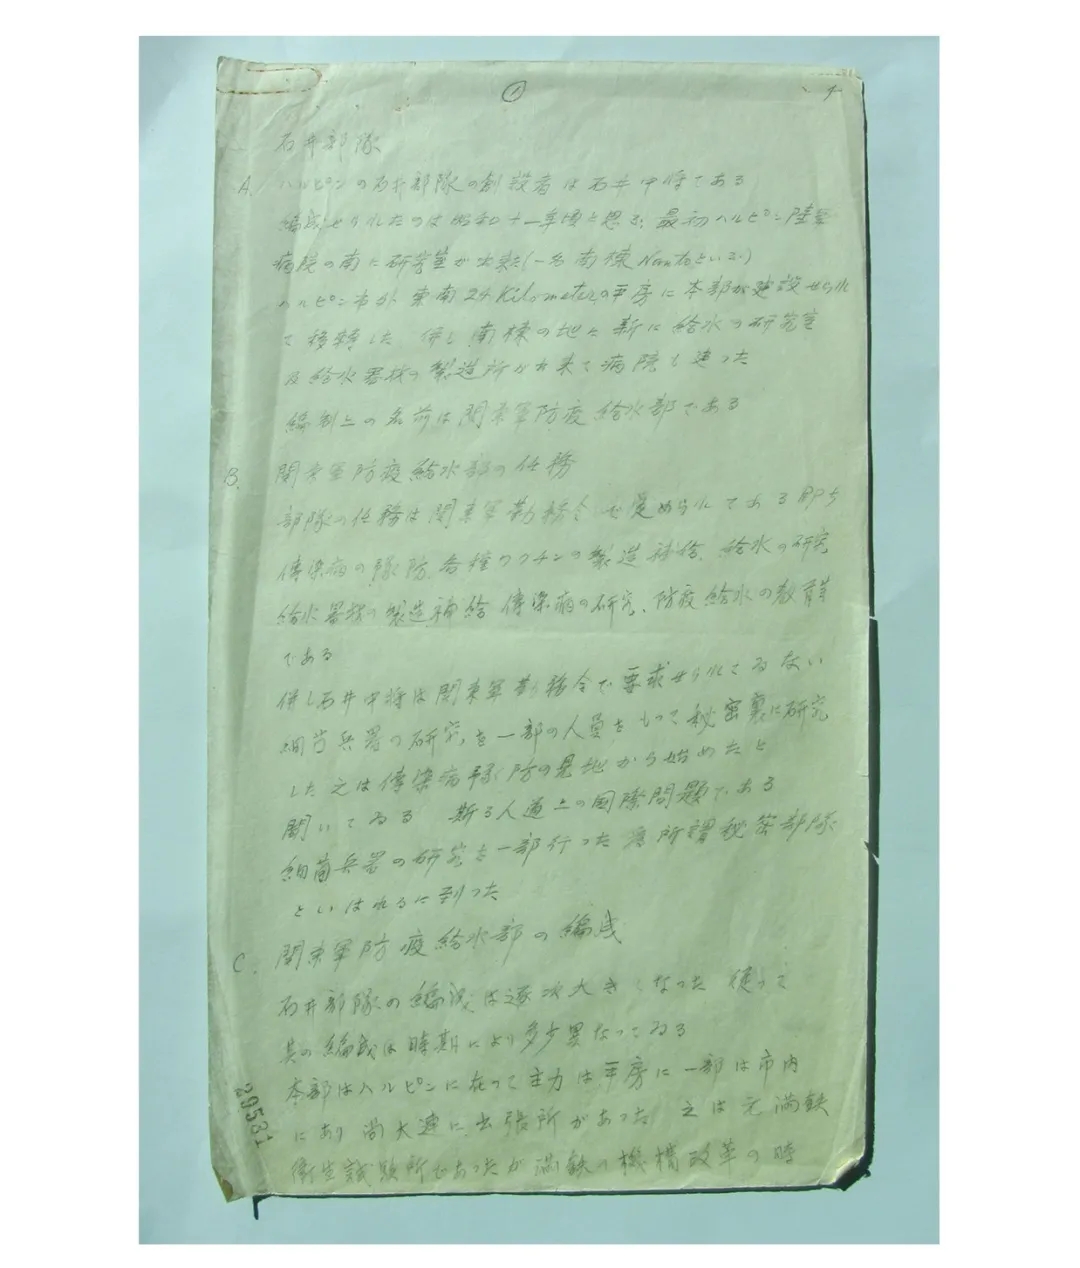 ①
石井部隊
A. ハルピンの石井部隊の創設者は石井中将である
編成せられたのは昭和十一年頃と思ふ, 最初ハルピン陸軍
病院の南に研究室が出来た(一名南棟 といふ)
ハルピン市外東南24 Kilometerの平房に本部が建設せられ
て移転した 併し南棟の地に新に給水の研究室
及給水器材の製造所が出来て病院も建った
編制上の名前は関東軍防疫給水部である
B. 関東軍防疫給水部の任務
部隊の任務は関東軍勤務令で定められてある即ち
傳染病の豫防, 各種ワクチンの製造補給, 給水の研究
給水器材の製造補給 傳染病の研究, 防疫給水の教育等
である
併し石井中将は関東軍勤務令で要求せられてゐない
細菌兵器の研究を一部の人員をもって秘密裏に研究
した 之は傳染病豫防の見地から始めたと
聞いてゐる 斯る人道上の国際問題である
細菌兵器の研究を一部行った為所謂秘密部隊
といはれるに到った
C. 関東軍防疫給水部の編成
石井部隊の編成は逐次大きくなった 従って
其の編成は時期により多少異なってゐる
本部はハルピンに在って主力は平房に一部は市内
にあり 尚大連に出張所があった 之は元満鉄
衛生試験所であったが満鉄の機構改革の時
29531